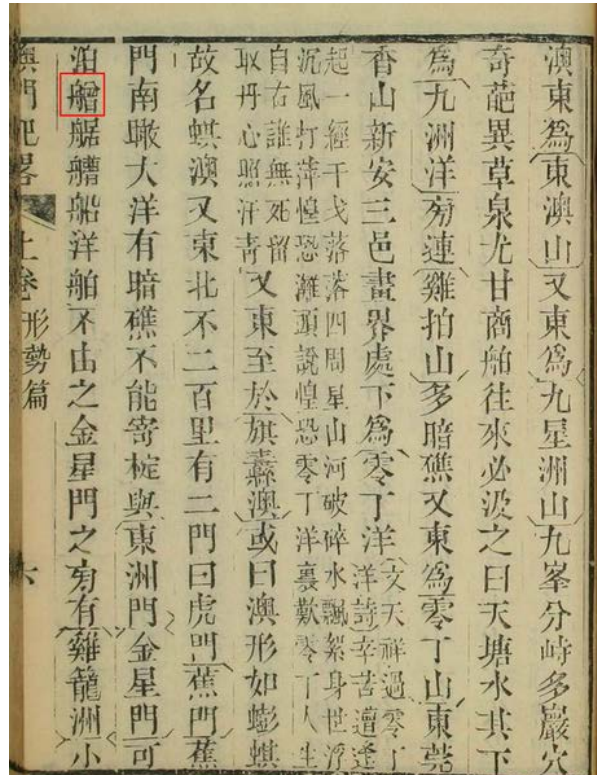 澳東爲東澳山又東爲九星洲山九峯分峙多巖穴
奇葩異草泉尤甘商舶往來必汲之曰天塘水其下
爲九洲洋旁連雞拍山多暗礁又東爲零丁山東莞
香山新安三邑畫界處下爲零丁洋文天祥過零丁洋詩辛苦遭逢
起一經干戈落落四周星山河破碎水飄絮身世浮
沉風打萍惶恐灘頭說惶恐零丁洋裏歎零丁人生
自古誰無死留取丹心照汗青又東至於旗纛澳或曰澳形如蟛蜞
故名蜞澳又東北不二百里有二門曰虎門蕉門蕉
門南瞰大洋有暗礁不能寄椗與東洲門金星門可
泊䑬艍艚船洋舶不由之金星門之旁有雞籠洲小
澳門記畧 上卷 形勢篇 六